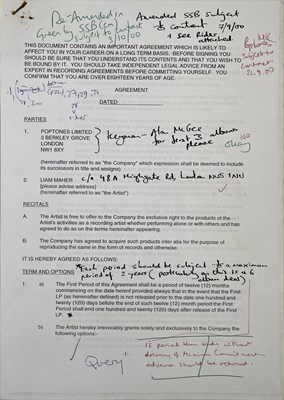 Re-Amended in
Green by SSB Cons
Subject to
9/10/00
Amended SSB Subject
to Contract 7/9/00
+ see Rider
attached.
Poptones
MK
Subject to
contract
21.9.00
THIS DOCUMENT CONTAINS AN IMPORTANT AGREEMENT WHICH IS LIKELY TO
AFFECT YOU IN YOUR CAREER ON A LONG TERM BASIS. BEFORE SIGNING YOU
SHOULD BE SURE THAT YOU UNDERSTAND ITS CONTENTS AND THAT YOU WISH TO
BE BOUND BY IT. YOU SHOULD TAKE INDEPENDENT LEGAL ADVICE FROM AN
EXPERT IN RECORDING AGREEMENTS BEFORE COMMITTING YOURSELF. YOU
CONFIRM THAT YOU ARE OVER EIGHTEEN YEARS OF AGE.
AGREEMENT
DATED
PARTIES
1. POPTONES LIMITED
3 BERKLEY GROVE
LONDON
NW1 8XY
Keyman - Alan McGee
for first 3 albums
please
NO
okay
(hereinafter referred to as "the Company" which expression shall be deemed to include
its successors in title and assigns)
2. LIAM MAHER c/o 48A Highgate Rd, London NW5 1NN
[please advise address]
(hereinafter referred to as "the Artist")
RECITALS
A. The Artist is free to offer to the Company the exclusive right to the products of the
Artist's activities as a recording artist whether performing alone or with others and has
agreed to do so on the terms hereinafter appearing.
B. The Company has agreed to acquire such products inter alia for the purpose of
reproducing the same in the form of records and otherwise.
IT IS HEREBY AGREED AS FOLLOWS:
*Each period should be subject to a maximum
TERM AND OPTIONS period of 2 years (particularly as this is a 6
album deal)
1. a) The First Period of this Agreement shall be a period of twelve (12) months
commencing on the date hereof provided always that in the event that the First
LP (as hereinafter defined) is not released prior to the date one hundred and
twenty (120) days before the end of such twelve (12) month period the First
Period shall end one hundred and twenty (120) days after release of the First
LP. *
b) The Artist hereby irrevocably grants solely and exclusively to the Company the
following options:-
Query
If period then ends without
delivery of Minimum Commitment
advance should be returned.